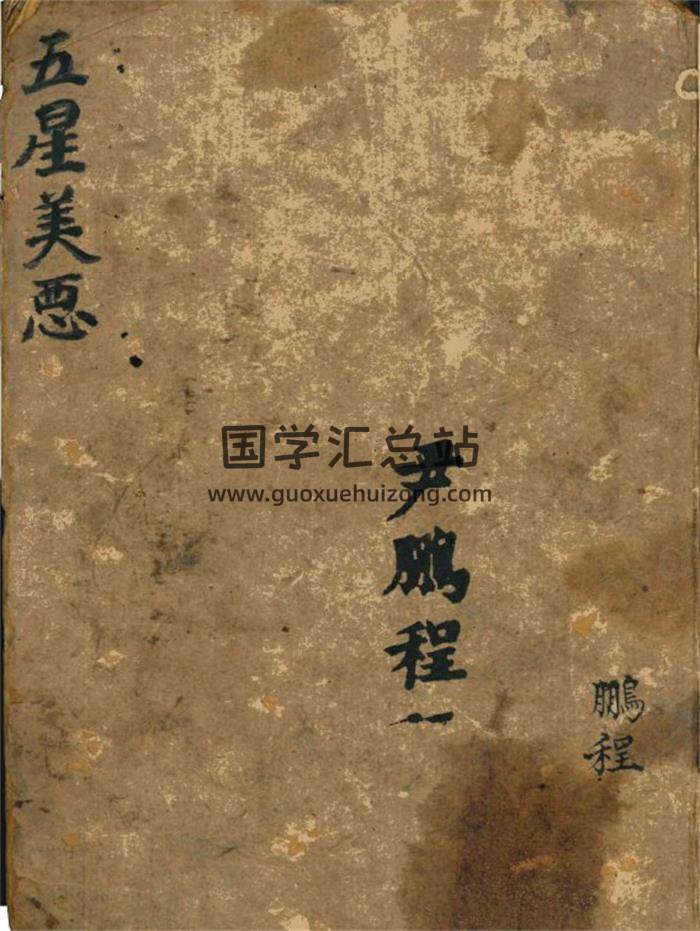 五星美恶
国学汇总站
www.guoxuehuizong.com
尹鹏程一
鵬程